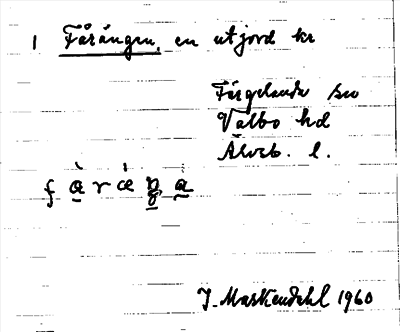 1 Fårängen, en utjord kr
Färgelanda sn
Valbo hd
Älvsb. l.
J. Markendahl 1960